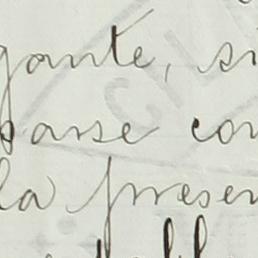 gante, si
parse con
la presen